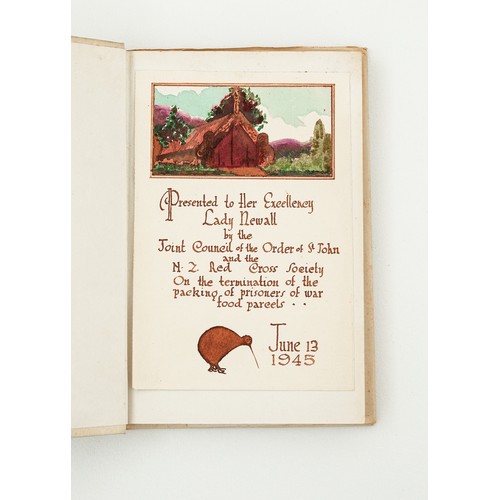 Presented to Her Excellency
Lady Newall
by the
Joint Council of the Order of St John
and the
N.Z Red Cross Society
On the termination of the
packing of prisoners of war
food parcels . .
June 13
1945